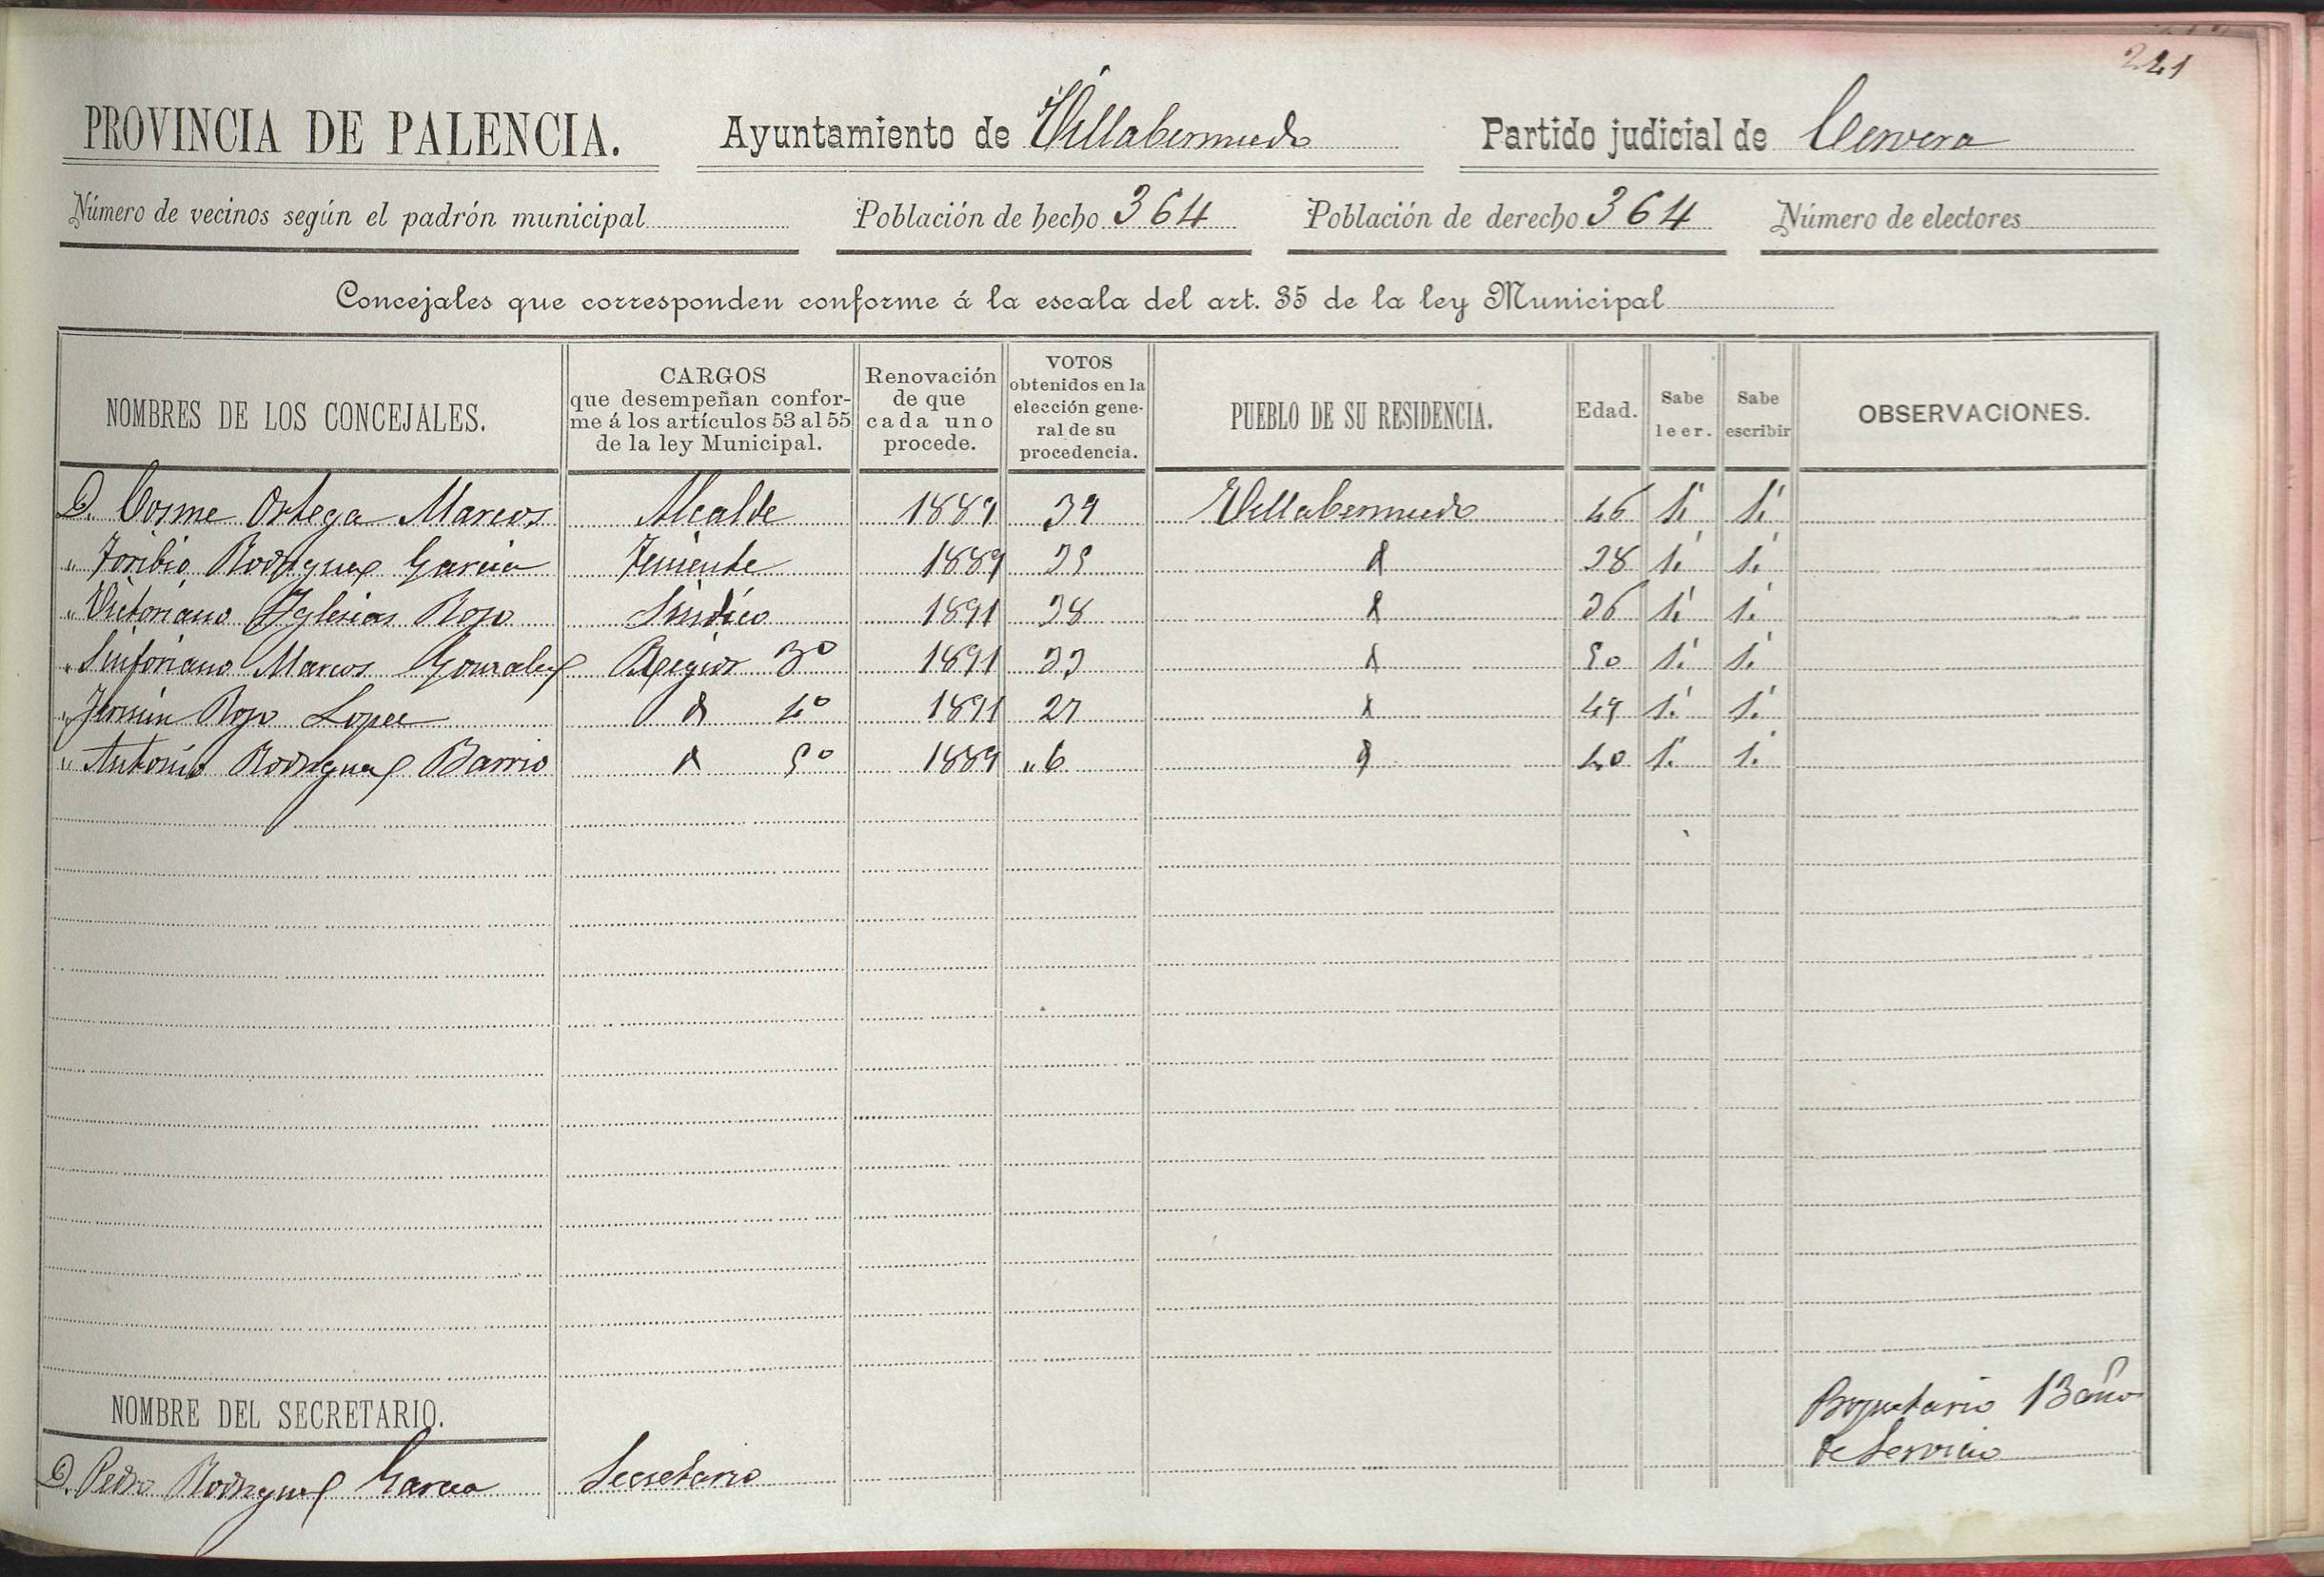 221
PROVINCIA DE PALENCIA. Ayuntamiento de Villabermudo Partido judicial de Cervera
Número de vecinos según el padrón municipal Población de hecho 364 Población de derecho 364 Número de electores
Concejales que corresponden conforme á la escala del art. 35 de la ley Municipal
NOMBRES DE LOS CONCEJALES. CARGOS que desempeñan conforme á los artículos 53 al 55 de la ley Municipal. Renovación de que cada uno procede. VOTOS obtenidos en la elección general de su procedencia. PUEBLO DE SU RESIDENCIA. Edad. Sabe leer. Sabe escribir OBSERVACIONES.
D. Cosme Ortega Marcos Alcalde 1889 39 Villabermudo 46 Si Si
" Toribio Rodriguez Garcia Teniente 1889 25 d 38 Si Si
" Victoriano Yglesias Rojo Sindico 1891 38 d 36 Si Si
" Sinforiano Marcos Gonzalez Regidor 3º 1891 33 d 50 Si Si
" Fermin Rojo Lopez d 4º 1891 27 d 49 Si Si
" Antonio Rodriguez Barrio d 5º 1889 " 6 d 40 Si Si
NOMBRE DEL SECRETARIO.
D. Pedro Rodriguez Garcia Secretario Propietario 13 años
de Servicio